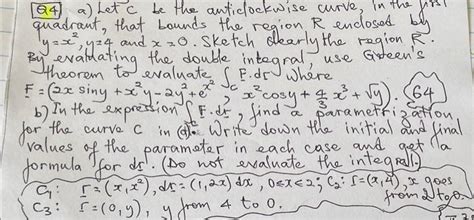 Q4 a) Let C be the anticlockwise curve, in the first
quadrant, that bounds the region R enclosed by
y=x², y=4 and x=0. Sketch clearly the region R.
By evaluating the double integral, use Green's
theorem to evaluate ∫_C F.dr where
F=(2x siny + x²y - 2y² + e^x², x² cosy + 4/3 x³ + √y). 64
b) In the expression ∫_C F.dr, find a parametrization
for the curve C in a. Write down the initial and final
values of the parameter in each case and get a
formula for dr. (Do not evaluate the integral.)
C₁: r=(x,x²), dr=(1,2x)dx, 0≤x≤2; C₂: r=(x,4), x goes
from 2 to 0
C₃: r=(0,y), y from 4 to 0.